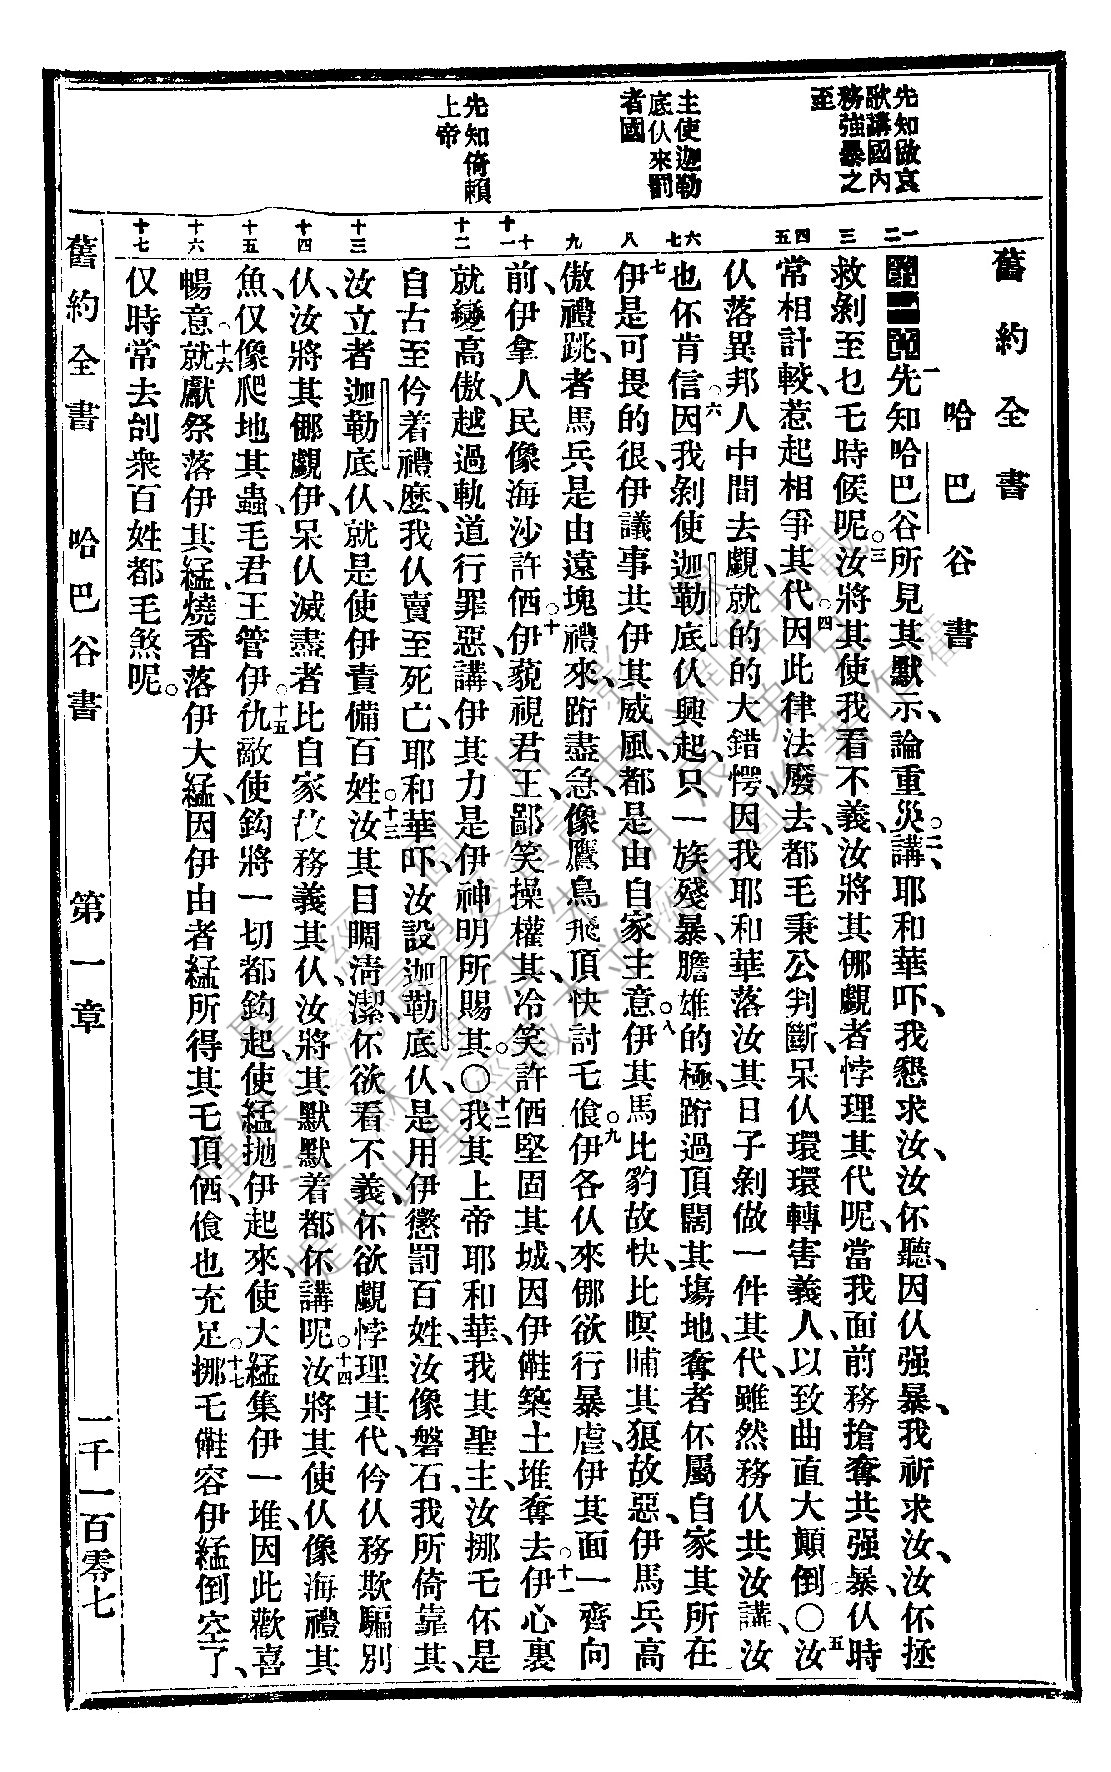 舊約全書
哈巴谷書
先知做哀
歌講國內
務強暴之
至
主使迦勒
底仈來罰
者國
先知倚賴
上帝
一 二 三 四 五 六 七 八 九 十 十一 十二 十三 十四 十五 十六 十七
第一章 一 先知哈巴谷所見其默示論重災。二講、耶和華吓、我懇求汝、汝伓聽、因仈强暴、我祈求汝、汝伓拯
救剝至乜乇時候呢。三汝將其使我看不義、汝將其㑚覷者悖理其代呢、當我面前務搶奪共强暴、仈時
常相計較、惹起相爭其代。四因此律法廢去、都毛秉公判斷、呆仈環環轉害義人、以致曲直大顛倒〇五汝
仈落異邦人中間去覷、就的的大錯愕、因我耶和華落汝其日子剝做一件其代、雖然務仈共汝講、汝
也伓肯信。六因我剝使迦勒底仈興起、只一族殘暴、膽雄的極、跨過頂闊其塲地、奪者伓屬自家其所在
七伊是可畏的很、伊議事共伊其威風、都是由自家主意。八伊其馬比豹故快、比暝晡其狼故惡、伊馬兵高
傲禮跳、者馬兵是由遠塊禮來、跨盡急、像鷹鳥飛頂快討乇飡。九伊各仈來㑚欲行暴虐、伊其面一齊向
前、伊拿人民像海沙許価。十伊藐視君王、鄙笑操權其、冷笑許価堅固其城、因伊儺築土堆奪去。十一伊心裏
就變高傲、越過軌道行罪惡、講、伊其力是伊神明所賜其。〇十二我其上帝耶和華、我其聖主、汝挪毛伓是
自古至仱着禮麽、我仈賣至死亡、耶和華吓、汝設迦勒底仈、是用伊懲罰百姓、汝像磐石我所倚靠其、
汝立者迦勒底仈、就是使伊責備百姓。十三汝其目睭清潔、伓欲看不義、伓欲覷悖理其代、仱仈務欺騙別
仈、汝將其㑚覷伊、呆仈滅盡者比自家故務義其仈、汝將其默默着都伓講呢。十四汝將其使仈像海禮其
魚、仅像爬地其蟲、毛君王管伊。十五仇敵使鈎將一切都鈎起、使綕抛伊起來、使大綕集伊一堆、因此歡喜
暢意。十六就獻祭落伊其綕、燒香落伊大綕、因伊由者綕所得其乇頂価、飡也充足。十七挪乇儺容伊綕倒空了、
仅時常去刣衆百姓都毛煞呢。
舊約全書 哈巴谷書 第一章 一千一百零七